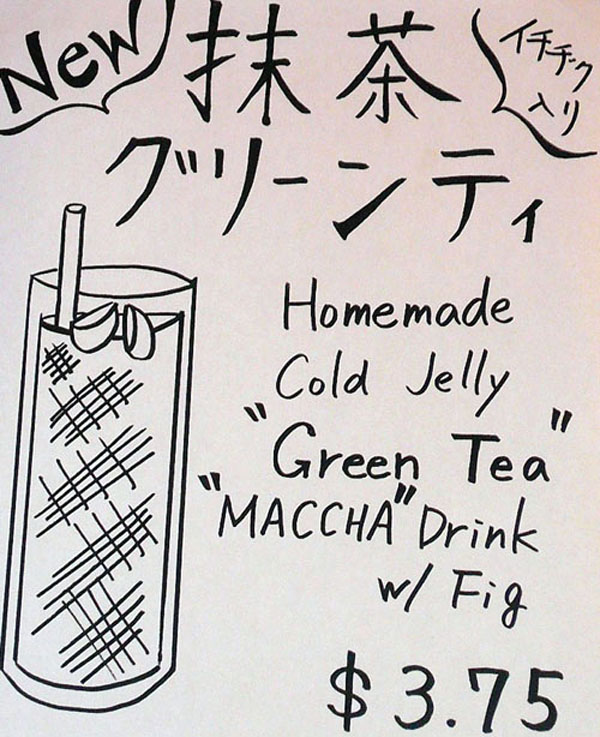 New
抹茶
イチヂク
入り
グリーンティ
Homemade
Cold Jelly
"Green Tea"
"MACCHA" Drink
w/ Fig
$3.75